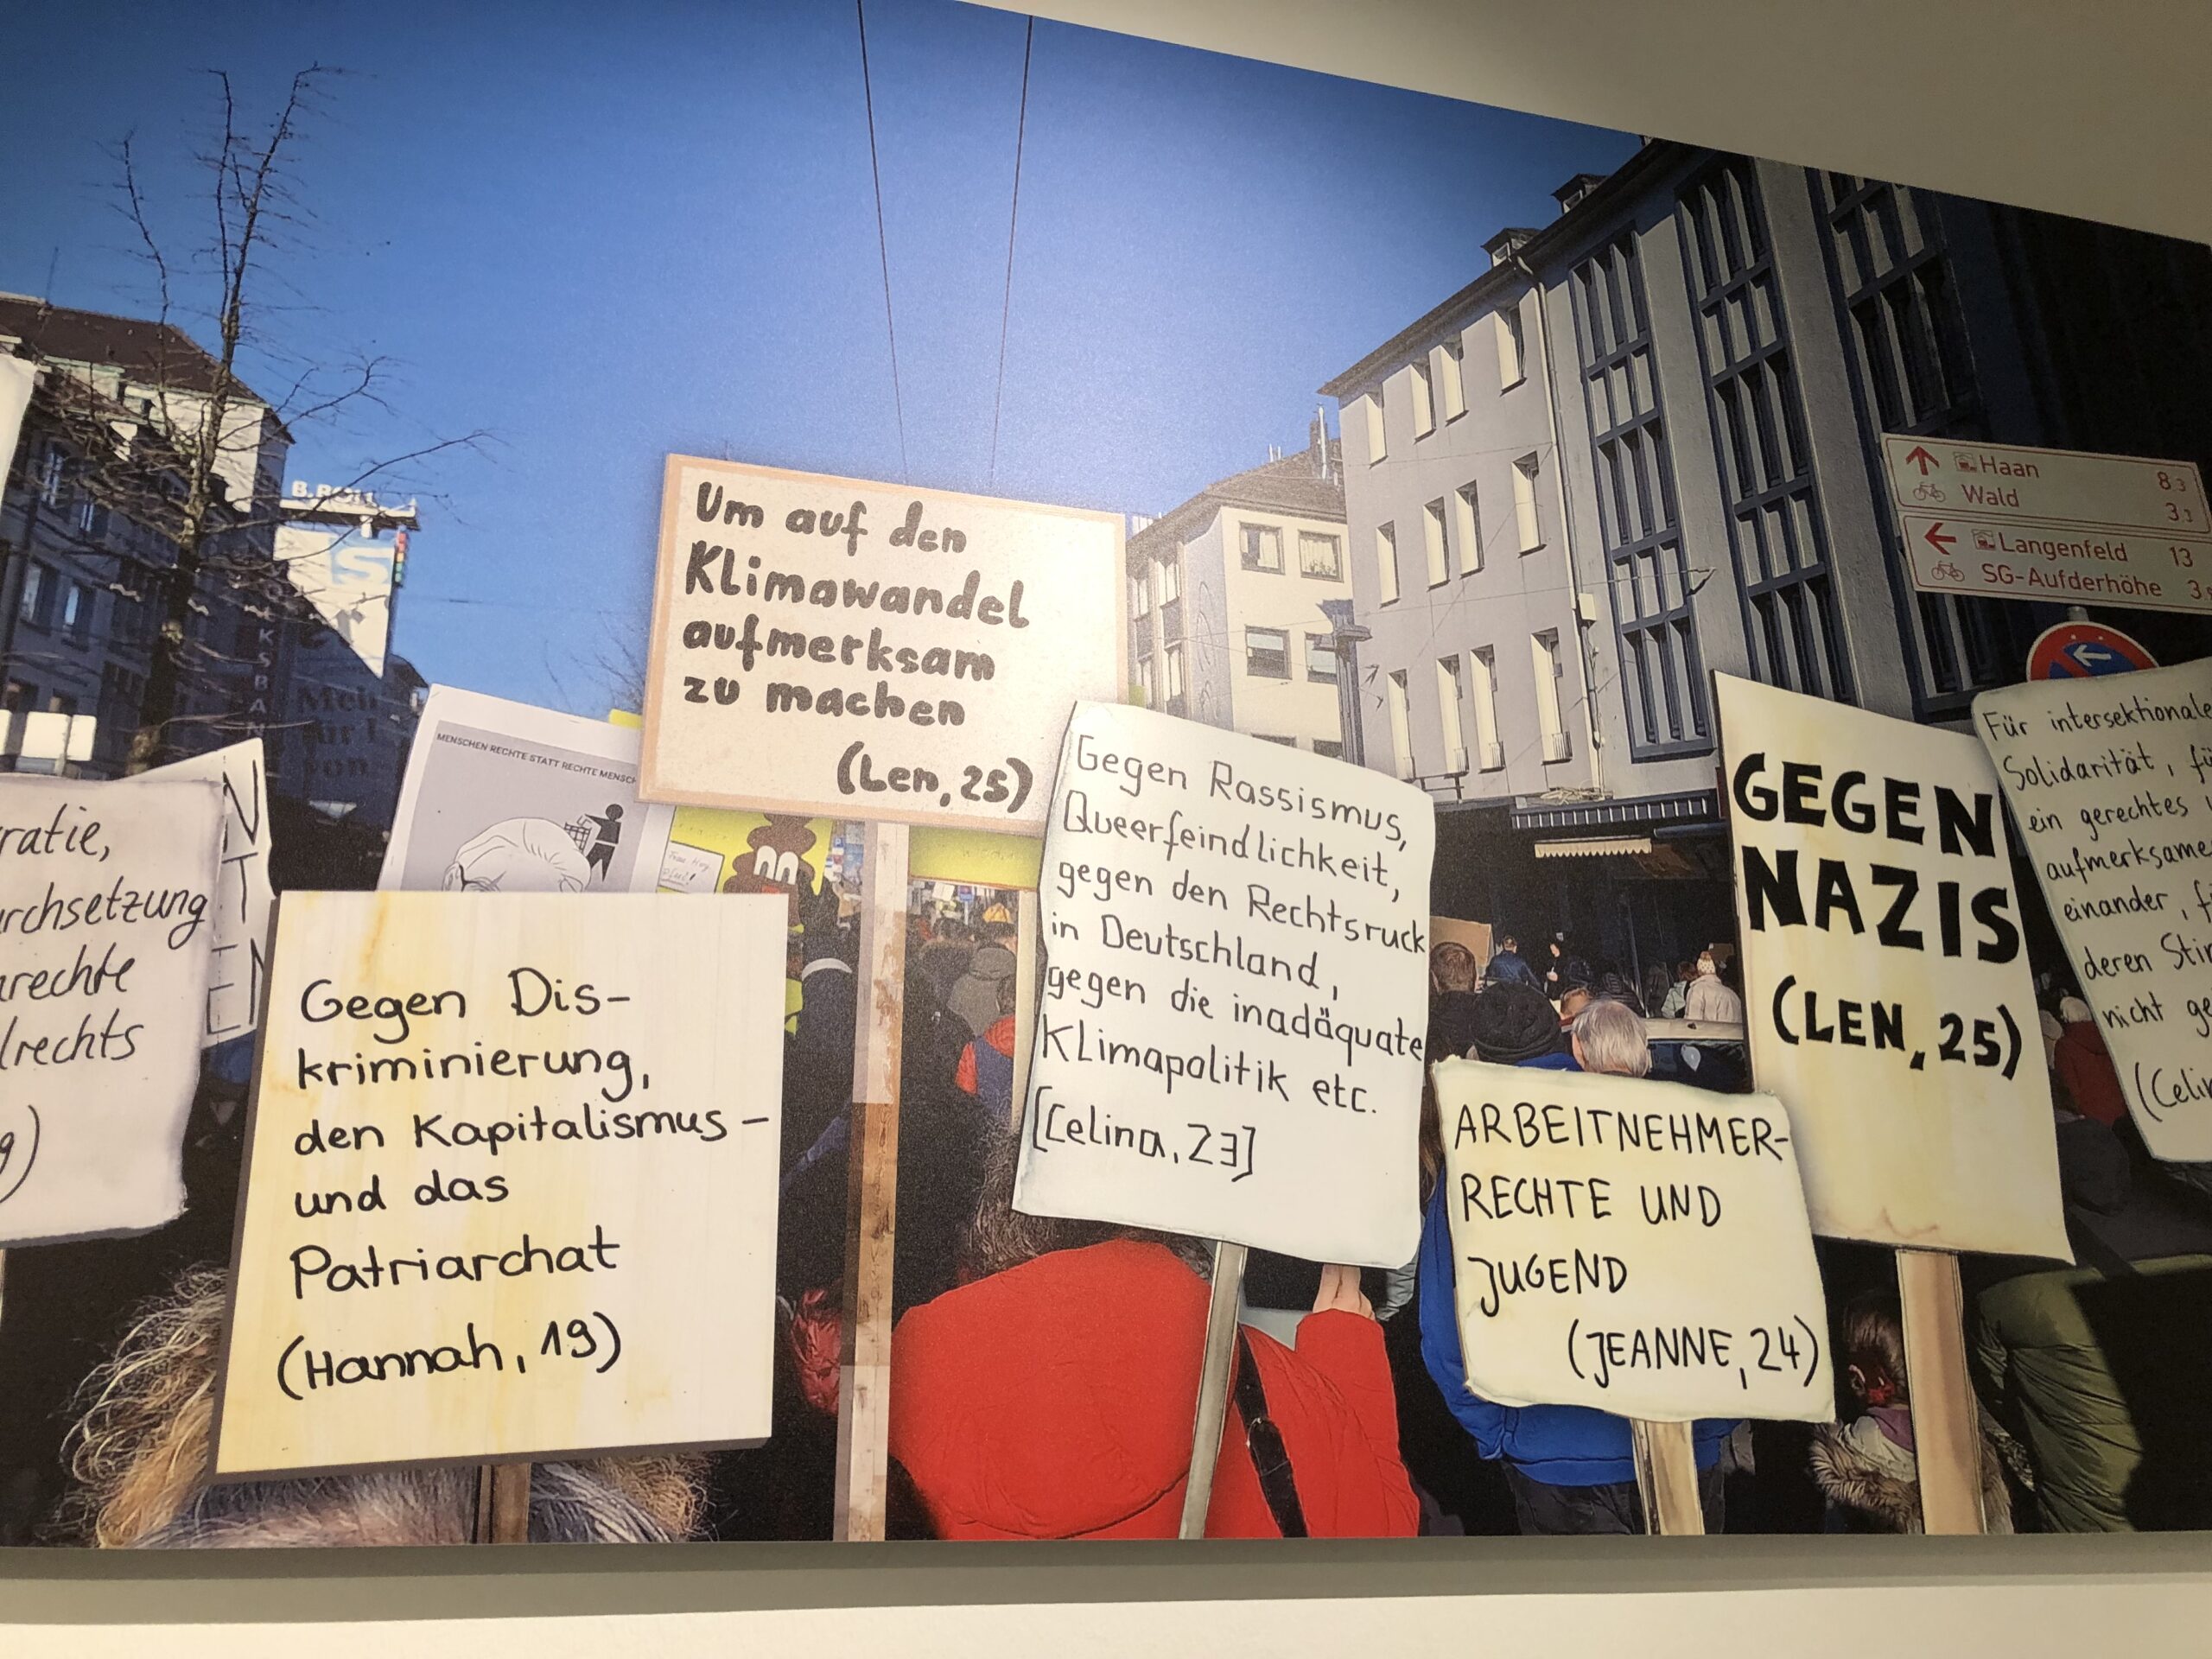 B.
S
Haan 8 3
Wald 3
Langenfeld 13
SG-Aufderhöhe 3
MENSCHEN RECHTE STATT RECHTE MENSCH
Um auf den
Klimawandel
aufmerksam
zu machen
(Len, 25)
Gegen Dis-
kriminierung,
den Kapitalismus-
und das
Patriarchat
(Hannah, 19)
Gegen Rassismus,
Queerfeindlichkeit,
gegen den Rechtsruck
in Deutschland,
gegen die inadäquate
Klimapolitik etc.
[Celina, 23]
ARBEITNEHMER-
RECHTE UND
JUGEND
(JEANNE, 24)
GEGEN
NAZIS
(LEN, 25)
Für intersektionale
Solidarität, fü
ein gerechtes
aufmerksame
einander, f
deren Stir
nicht ge
(Celin
ratie,
rchsetzung
rechte
lrechts
9)
N
T
EN